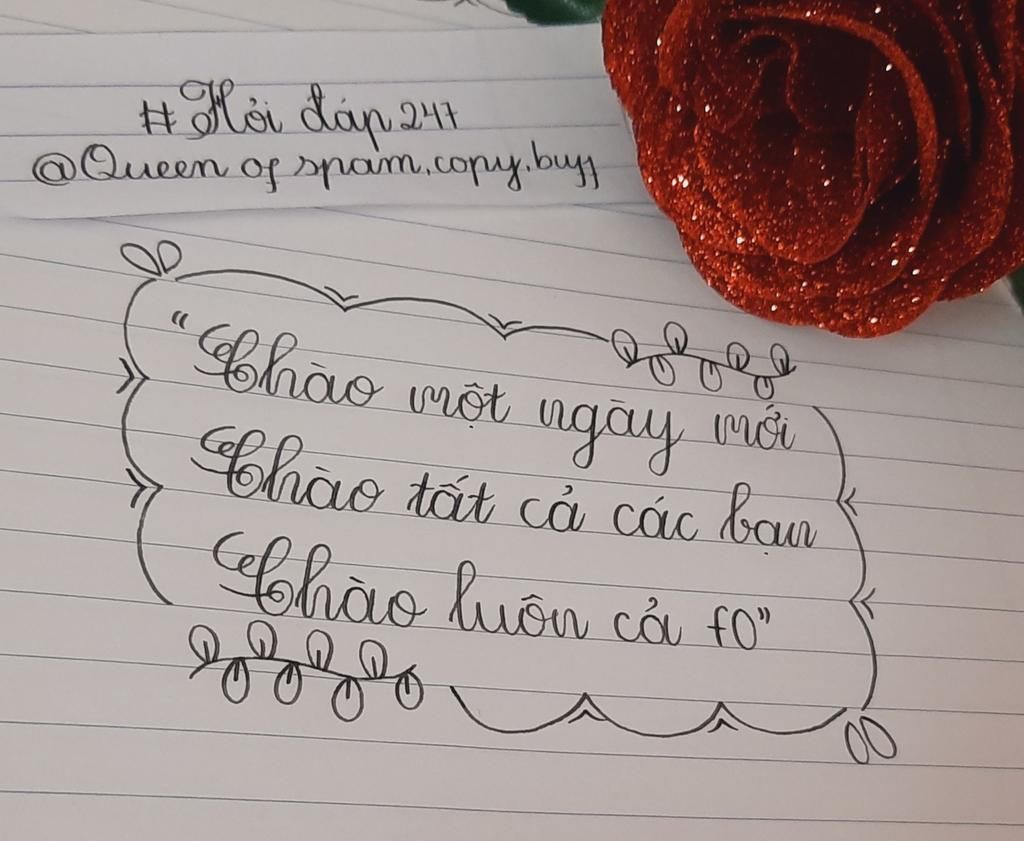 #Hỏi đáp 247
@Queen of spam.copy.buff
“Chào một ngày mới
Chào tất cả các bạn
Chào luôn cả f0”